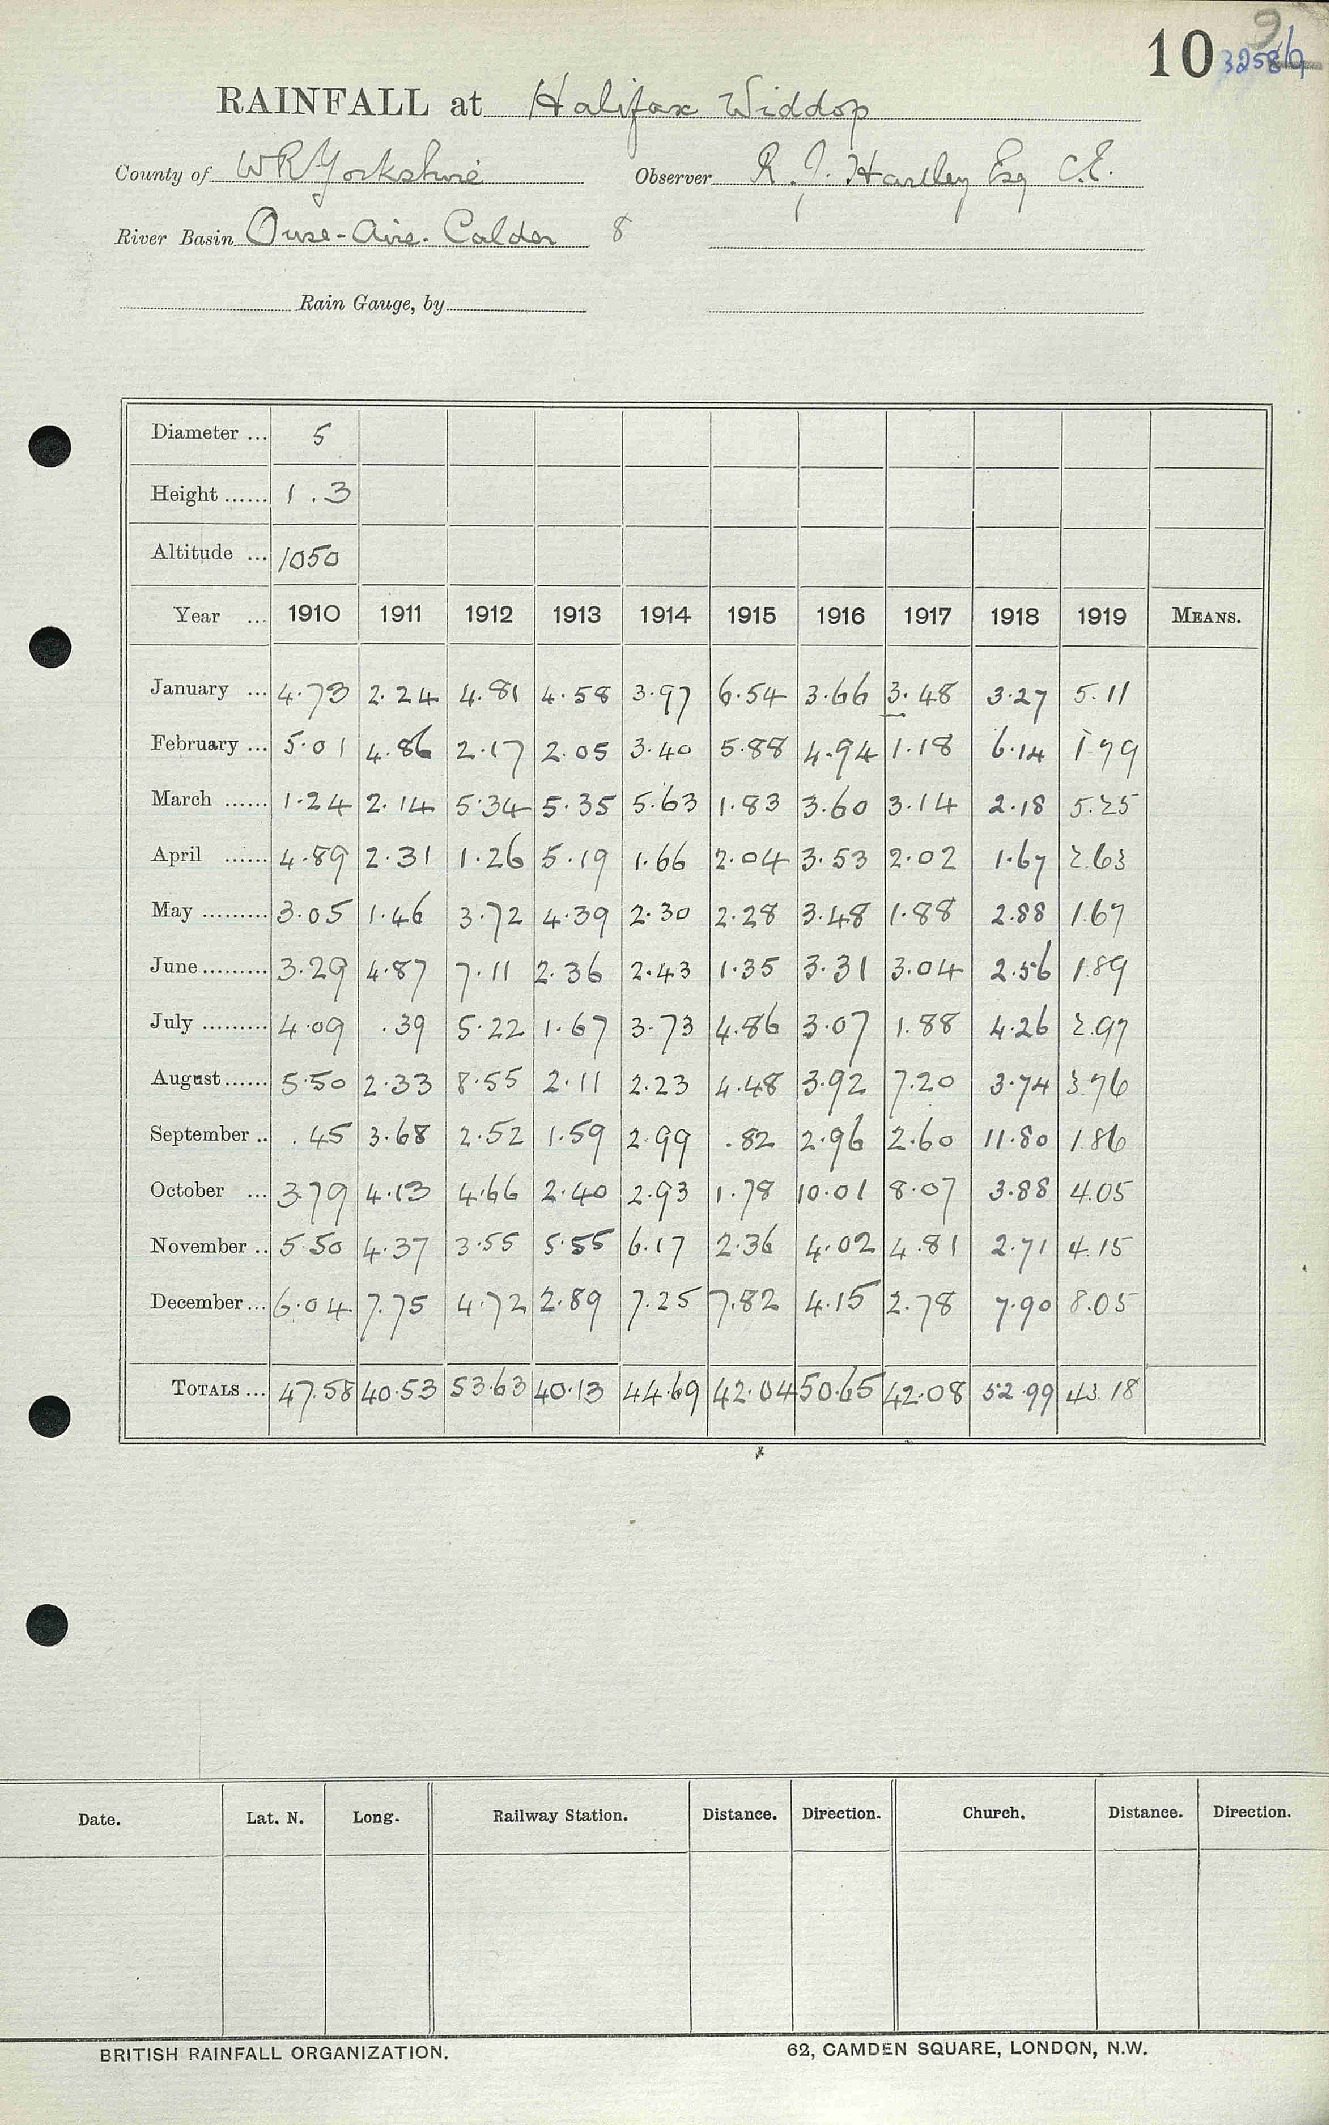 10 9
32586
RAINFALL at Halifax Widdop
County of WR Yorkshire Observer R. J. Hartley Esq C.E.
River Basin Ouse-Aire-Calder 8
Rain Gauge, by
Diameter ... 5
Height ...... 1.3
Altitude ... 1050
Year ... 1910 1911 1912 1913 1914 1915 1916 1917 1918 1919 MEANS.
January ... 4.73 2.24 4.81 4.58 3.97 6.54 3.66 3.48 3.27 5.11
February ... 5.01 4.86 2.17 2.05 3.40 5.88 4.94 1.18 6.14 1.79
March ...... 1.24 2.14 5.34 5.35 5.63 1.83 3.60 3.14 2.18 5.25
April ...... 4.89 2.31 1.26 5.19 1.66 2.04 3.53 2.02 1.67 2.63
May ......... 3.05 1.46 3.72 4.39 2.30 2.28 3.48 1.88 2.88 1.67
June ......... 3.29 4.87 7.11 2.36 2.43 1.35 3.31 3.04 2.56 1.89
July ......... 4.09 .39 5.22 1.67 3.73 4.86 3.07 1.88 4.26 2.97
August ...... 5.50 2.33 8.55 2.11 2.23 4.48 3.92 7.20 3.74 3.76
September .. .45 3.68 2.52 1.59 2.99 .82 2.96 2.60 11.80 1.86
October ... 3.79 4.13 4.66 2.40 2.93 1.78 10.01 8.07 3.88 4.05
November .. 5.50 4.37 3.55 5.55 6.17 2.36 4.02 4.81 2.71 4.15
December ... 6.04 7.75 4.72 2.89 7.25 7.82 4.15 2.78 7.90 8.05
TOTALS ... 47.58 40.53 53.63 40.13 44.69 42.04 50.65 42.08 52.99 43.18
x
Date. Lat. N. Long. Railway Station. Distance. Direction. Church. Distance. Direction.
BRITISH RAINFALL ORGANIZATION. 62, CAMDEN SQUARE, LONDON, N.W.